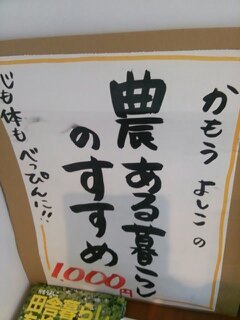 かもう よしこの
農ある暮らし
のすすめ
1000円
じも体も べっぴんに!!
田舎暮らし